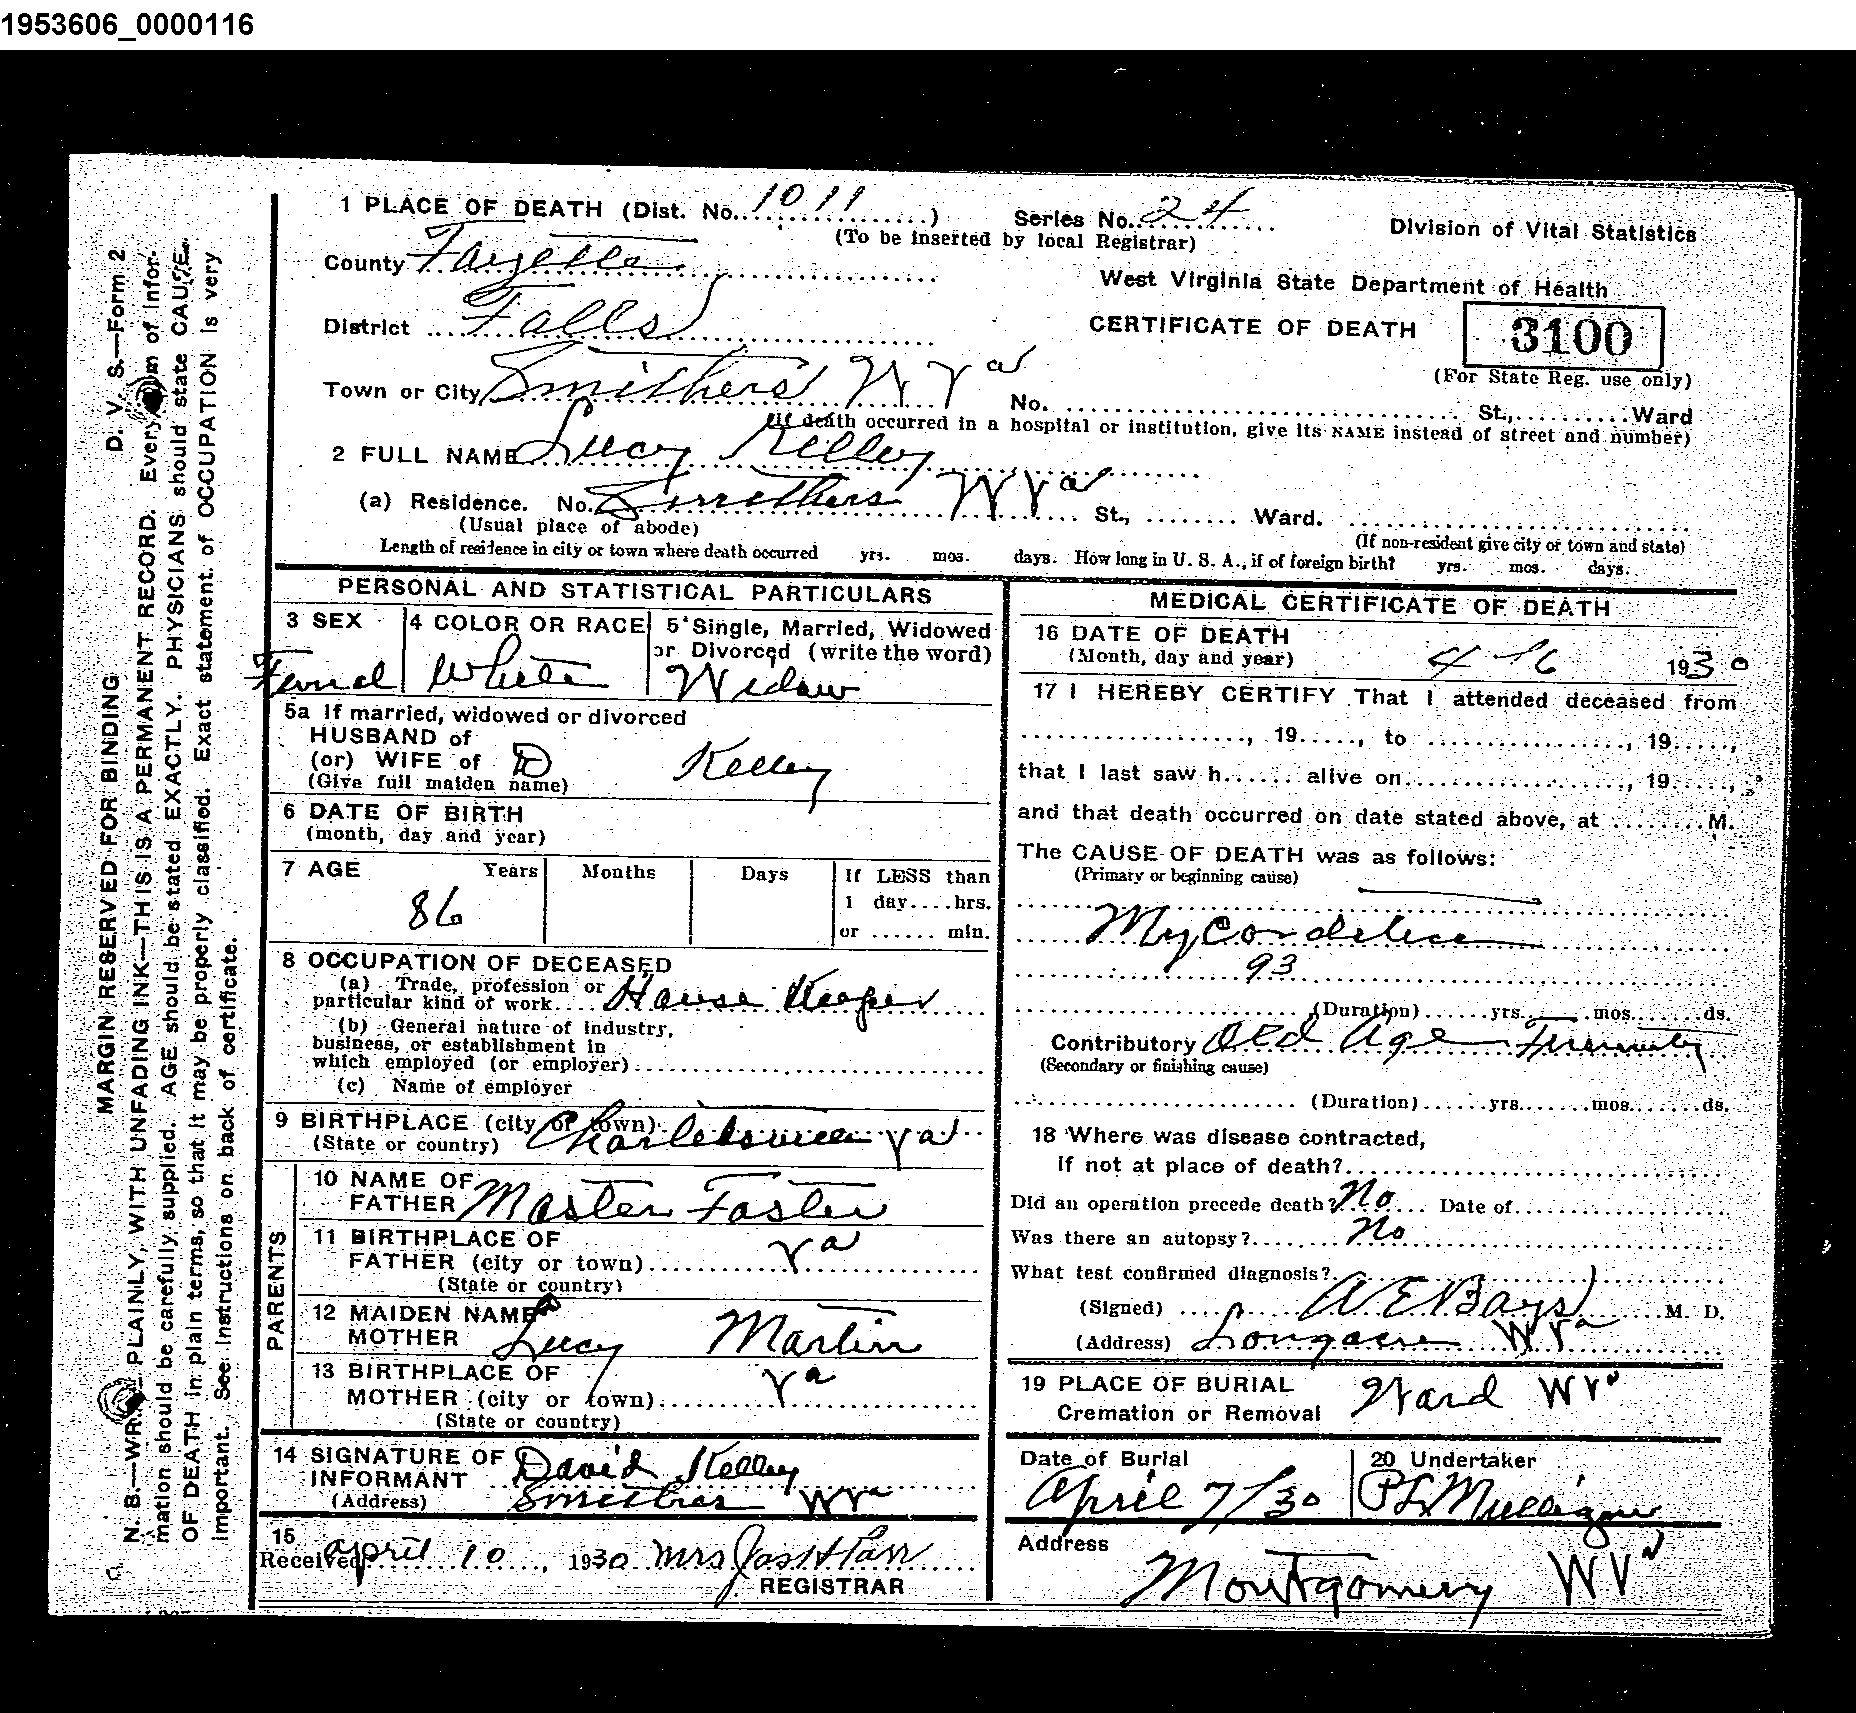 1953606_0000116
1 PLACE OF DEATH (Dist. No. 1011)
Series No. 24
(To be inserted by local Registrar)
Division of Vital Statistics
County Fayette
West Virginia State Department of Health
District Falls
CERTIFICATE OF DEATH
3100
(For State Reg. use only)
Town or City Smithers W Va
No. St., Ward
(If death occurred in a hospital or institution, give its NAME instead of street and number)
2 FULL NAME Lucy Kelley
(a) Residence. No. Smithers W Va St., Ward.
(Usual place of abode)
(If non-resident give city or town and state)
Length of residence in city or town where death occurred yrs. mos. days. How long in U. S. A., if of foreign birth? yrs. mos. days.
PERSONAL AND STATISTICAL PARTICULARS
3 SEX
Femal
4 COLOR OR RACE
White
5 Single, Married, Widowed
or Divorced (write the word)
Widow
5a If married, widowed or divorced
HUSBAND of
(or) WIFE of D Kelley
(Give full maiden name)
6 DATE OF BIRTH
(month, day and year)
7 AGE Years Months Days
86
If LESS than
1 day....hrs.
or ...... min.
8 OCCUPATION OF DECEASED
(a) Trade, profession or
particular kind of work.... House Keeper
(b) General nature of industry,
business, or establishment in
which employed (or employer)
(c) Name of employer
9 BIRTHPLACE (city or town) Charlottesville Va
(State or country)
PARENTS
10 NAME OF
FATHER Master Foster
11 BIRTHPLACE OF
FATHER (city or town) Va
(State or country)
12 MAIDEN NAME
MOTHER Lucy Martin
13 BIRTHPLACE OF
MOTHER (city or town) Va
(State or country)
14 SIGNATURE OF
INFORMANT David Kelley
(Address) Smithers W Va
15
Received April 10, 1930 Mrs Jas H Parr
REGISTRAR
MEDICAL CERTIFICATE OF DEATH
16 DATE OF DEATH
(Month, day and year) 4-6 1930
17 I HEREBY CERTIFY That I attended deceased from
, 19....., to , 19.....,
that I last saw h...... alive on , 19.....,
and that death occurred on date stated above, at ........M.
The CAUSE OF DEATH was as follows:
(Primary or beginning cause)
Mycordelice
93
(Duration)......yrs.......mos.......ds.
Contributory Old Age
(Secondary or finishing cause)
(Duration)......yrs.......mos.......ds.
18 Where was disease contracted,
if not at place of death?
Did an operation precede death? No Date of
Was there an autopsy? No
What test confirmed diagnosis?
(Signed) A E Bays M. D.
(Address) Longacre W Va
19 PLACE OF BURIAL
Cremation or Removal Ward W Va
Date of Burial
April 7/30
20 Undertaker
Address
Montgomery W Va
MARGIN RESERVED FOR BINDING
D. V. S.—Form 2
N. B.—WRITE PLAINLY, WITH UNFADING INK—THIS IS A PERMANENT RECORD. Every item of infor-
mation should be carefully supplied. AGE should be stated EXACTLY. PHYSICIANS should state CAUSE
OF DEATH in plain terms, so that it may be properly classified. Exact statement of OCCUPATION is very
important. See instructions on back of certificate.